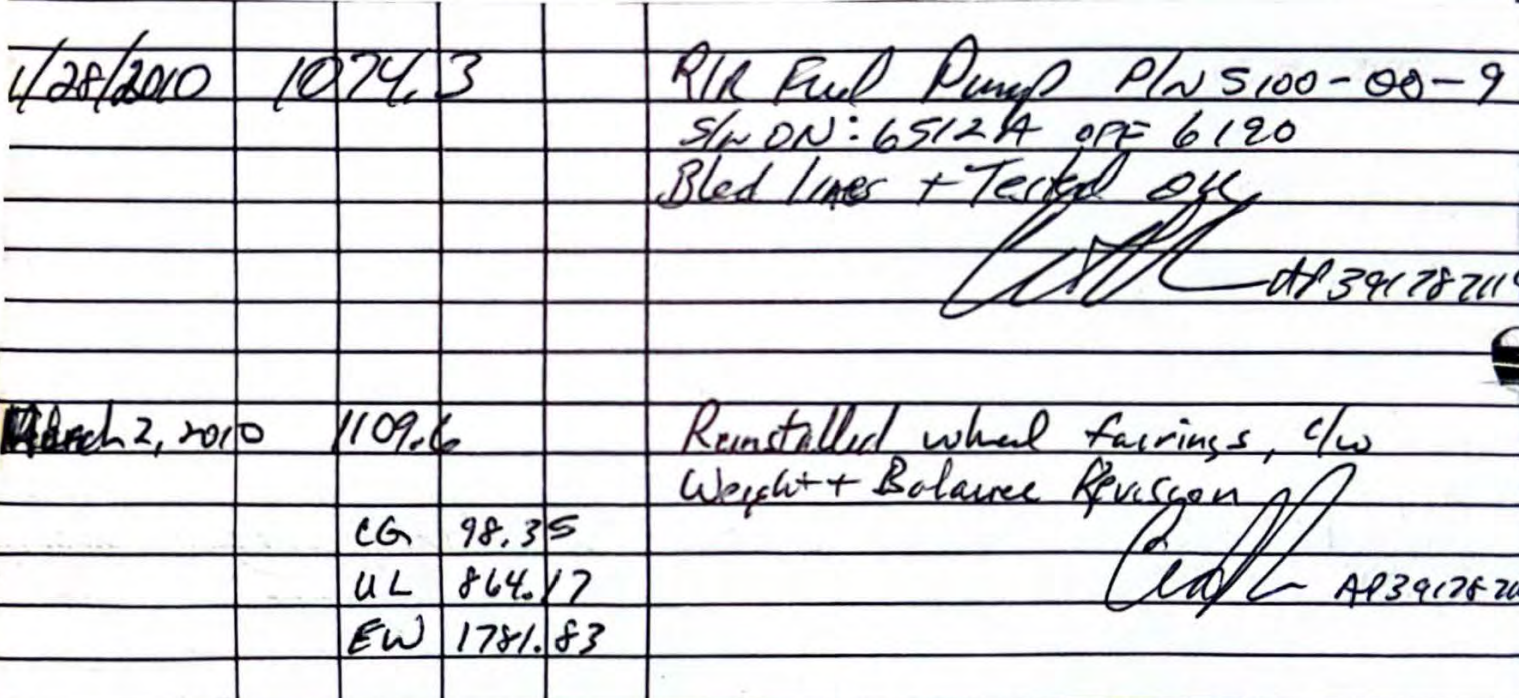 1/28/2010 1074.3 R/R Fuel Pump P/N 5100-00-9
S/N ON: 6512A OFF 6190
Bled lines + Tested OK
AP391787
March 2, 2010 1109.6 Reinstalled wheel fairings, c/w
Weight + Balance Revision
CG 98.35
UL 864.17 AP391787
EW 1781.83